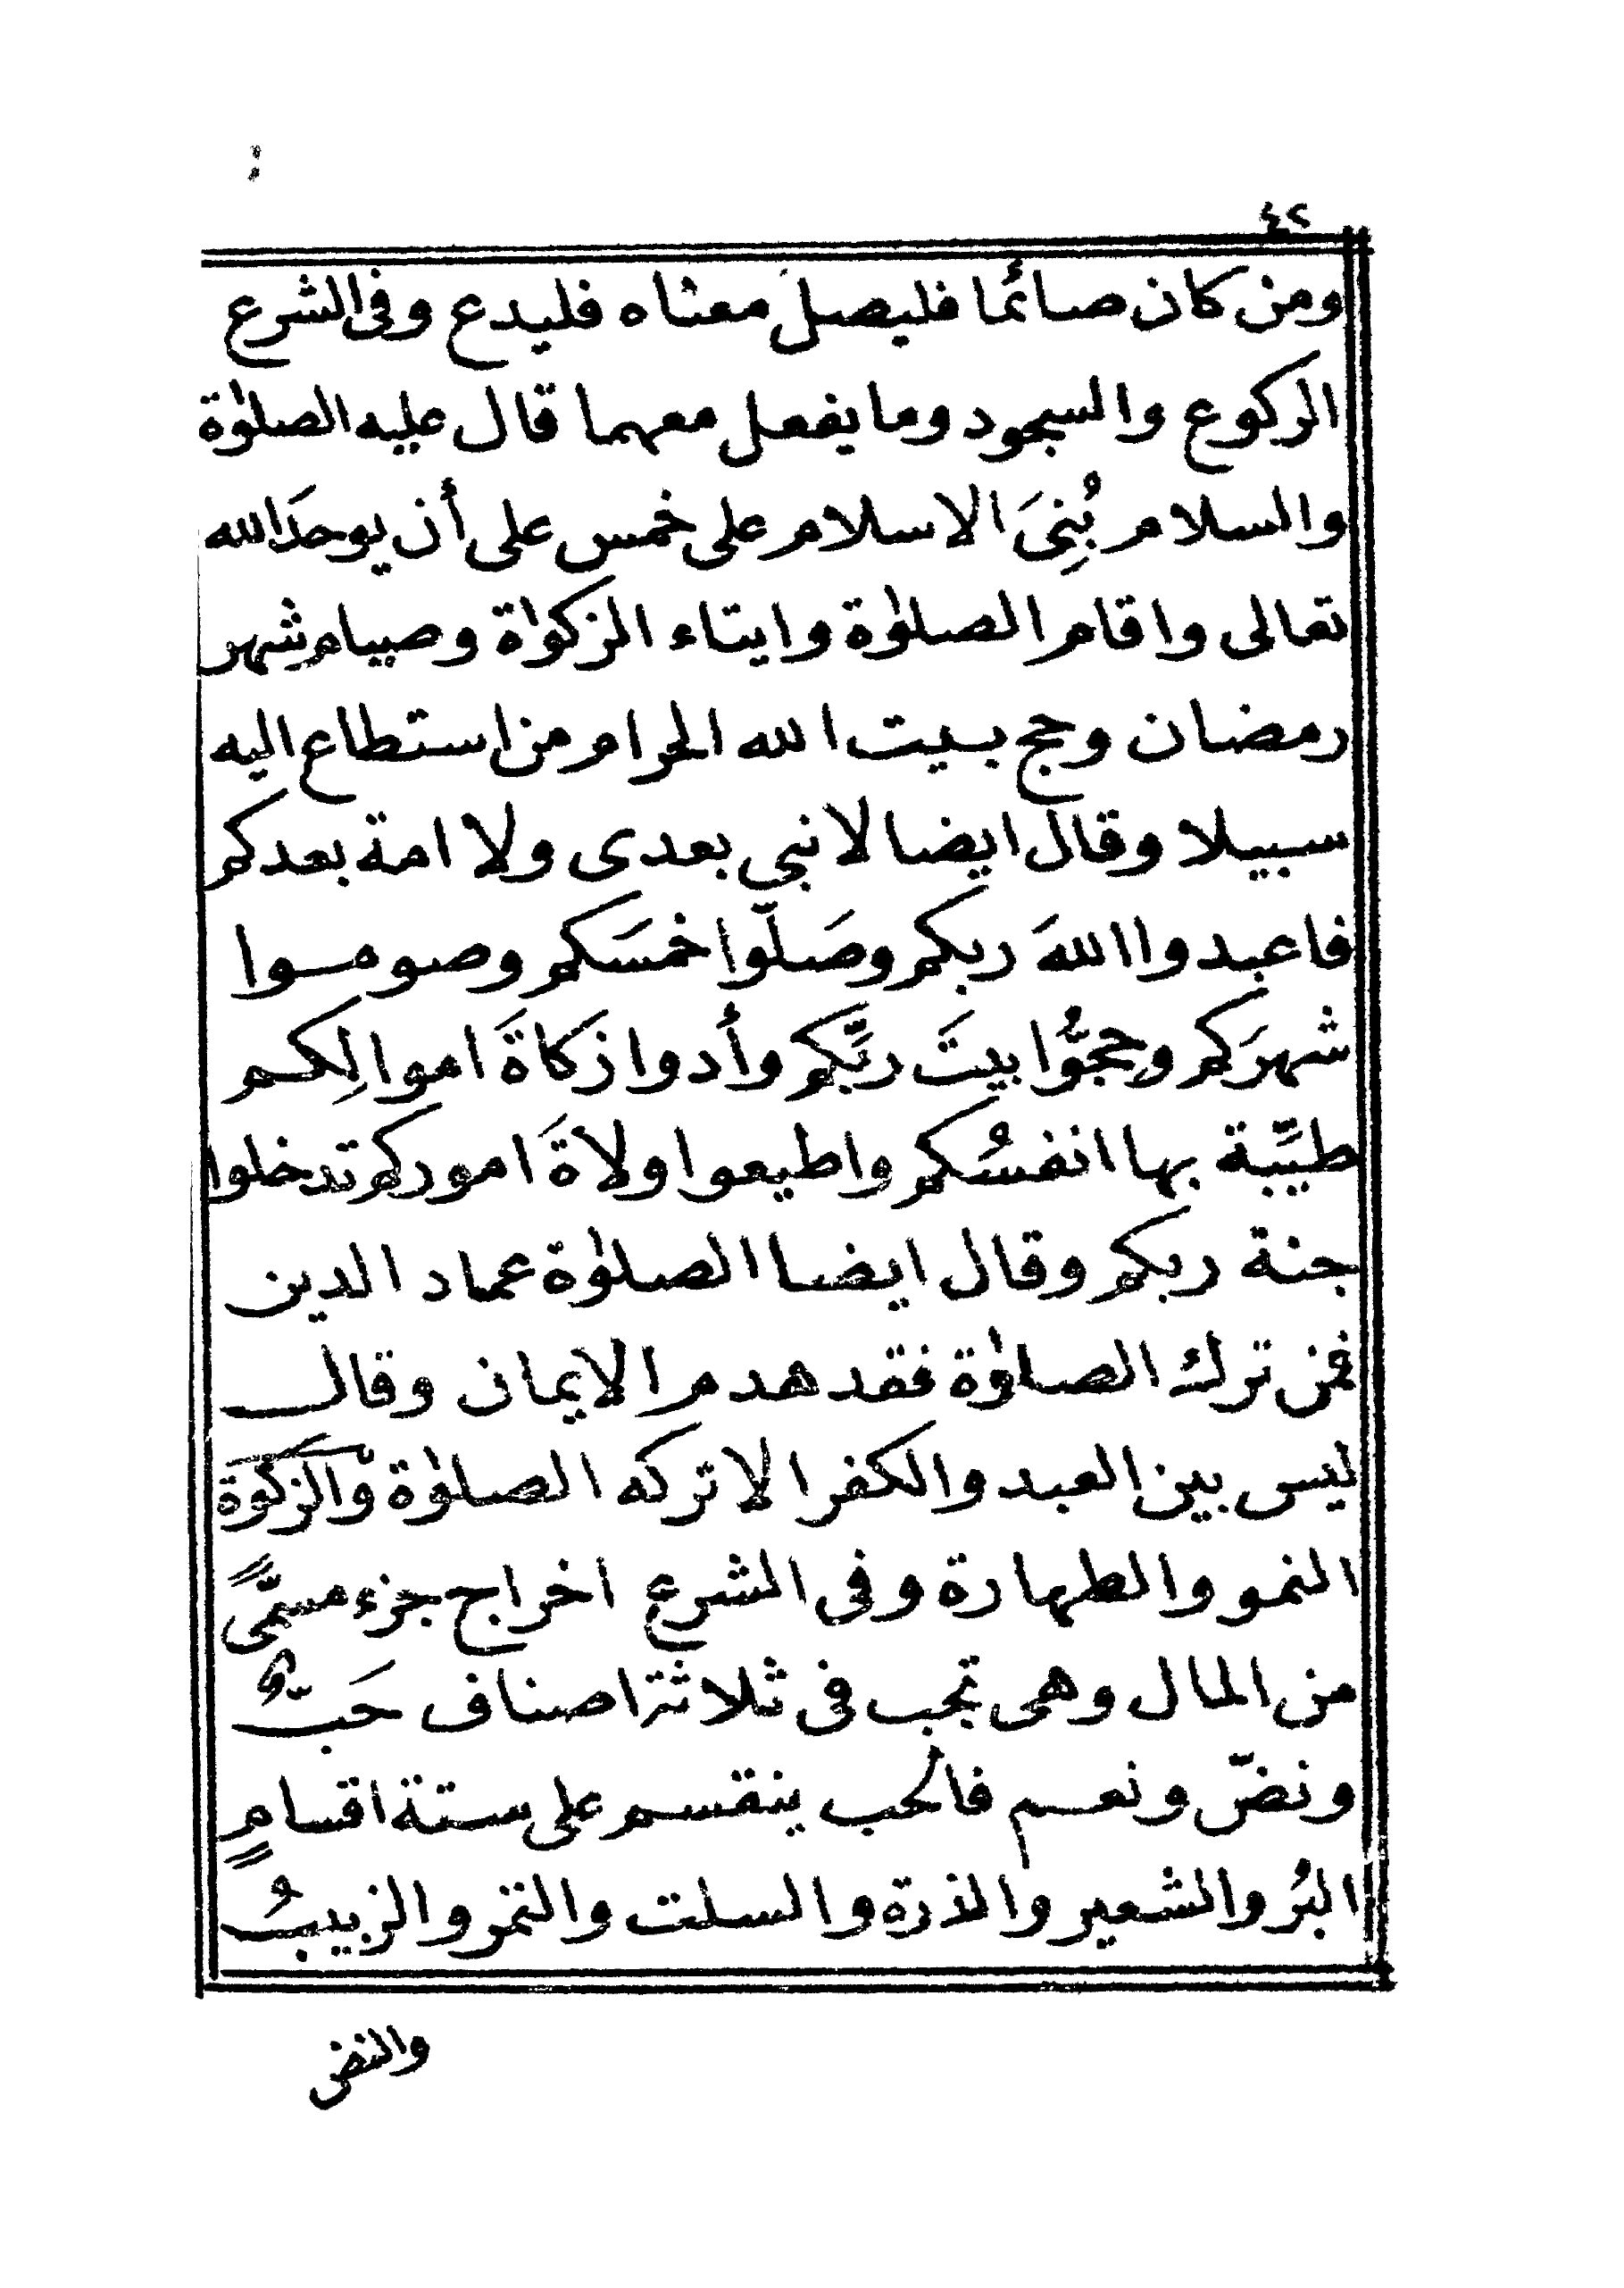 ٤٢
ومن كان صائما فليصل معناه فليدع وفى الشرع
الركوع والسجود وما يفعل معهما قال عليه الصلوٰة
والسلام بُنِىَ الاسلام على خمس على أن يوحدَ الله
تعالى واقام الصلوٰة وايتاء الزكوٰة وصيام شهر
رمضان وحج بيت الله الحرام من استطاع اليه
سبيلا وقال ايضا لا نبي بعدى ولا امة بعدكم
فاعبدوا اللهَ ربكم وصَلّوا خمسَكم وصوموا
شهرَكم وحجُّوا بيتَ ربِّكم وأدوا زكاةَ اموالِكم
طيِّبة بها انفسُكم واطيعوا ولاةَ اموركم تدخلوا
جنة ربكم وقال ايضا الصلوٰة عماد الدين
فمن ترك الصلوٰة فقد هدم الايمان وقال
ليس بين العبد والكفر الا تركه الصلوٰة والزكوة
النمو والطهارة وفى الشرع اخراج جزء مسمًّى
من المال وهى تجب فى ثلاثة اصناف حَبٌّ
ونضّ ونعم فالحب ينقسم على ستة اقسامٍ
البُر والشعير والذرة والسلت والتمر والزبيبُ
والنض